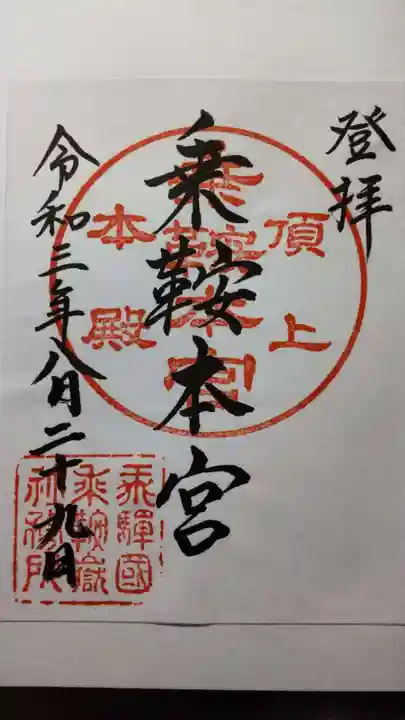 登拝
頂上
乗鞍本宮
乗鞍本宮
本殿
令和三年八月二十九日
乗鞍嶽